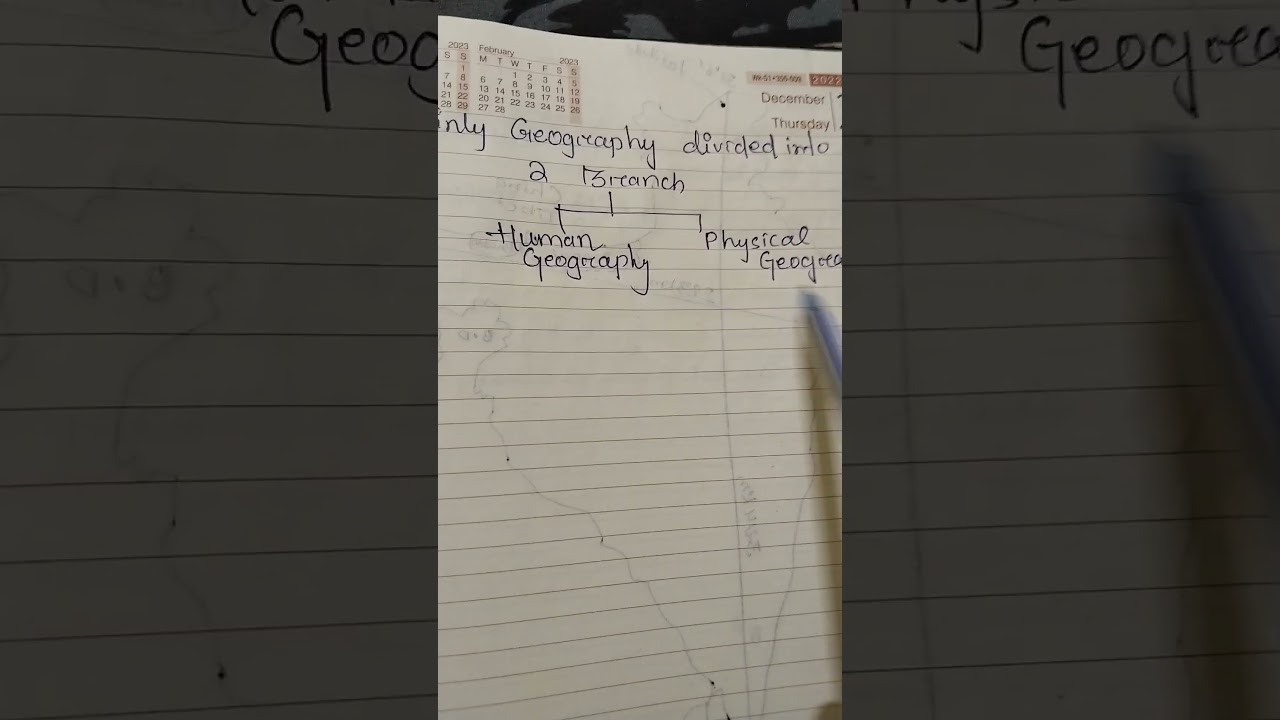 2023 February 2023
S S M T W T F S S
1 1 2 3 4 5
7 8 6 7 8 9 10 11 12
14 15 13 14 15 16 17 18 19
21 22 20 21 22 23 24 25 26
28 29 27 28
2022
December
Thursday
inly Geography divided into
2 Branch
Human Physical
Geography Geogra